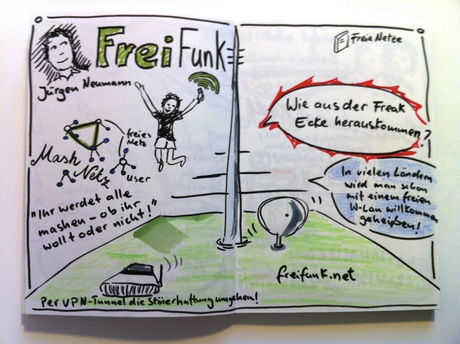 FreiFunk
Jürgen Neumann
freies
Netz
Mash
Netz
user
"Ihr werdet alle
mashen - ob ihr
wollt oder nicht!"
Per VPN-Tunnel die Störerhaftung umgehen!
Freie Netze
Wie aus der Freak
Ecke herauskommen?
In vielen Ländern
wird man schon
mit einem freien
W-Lan willkommen
geheißen!
freifunk.net